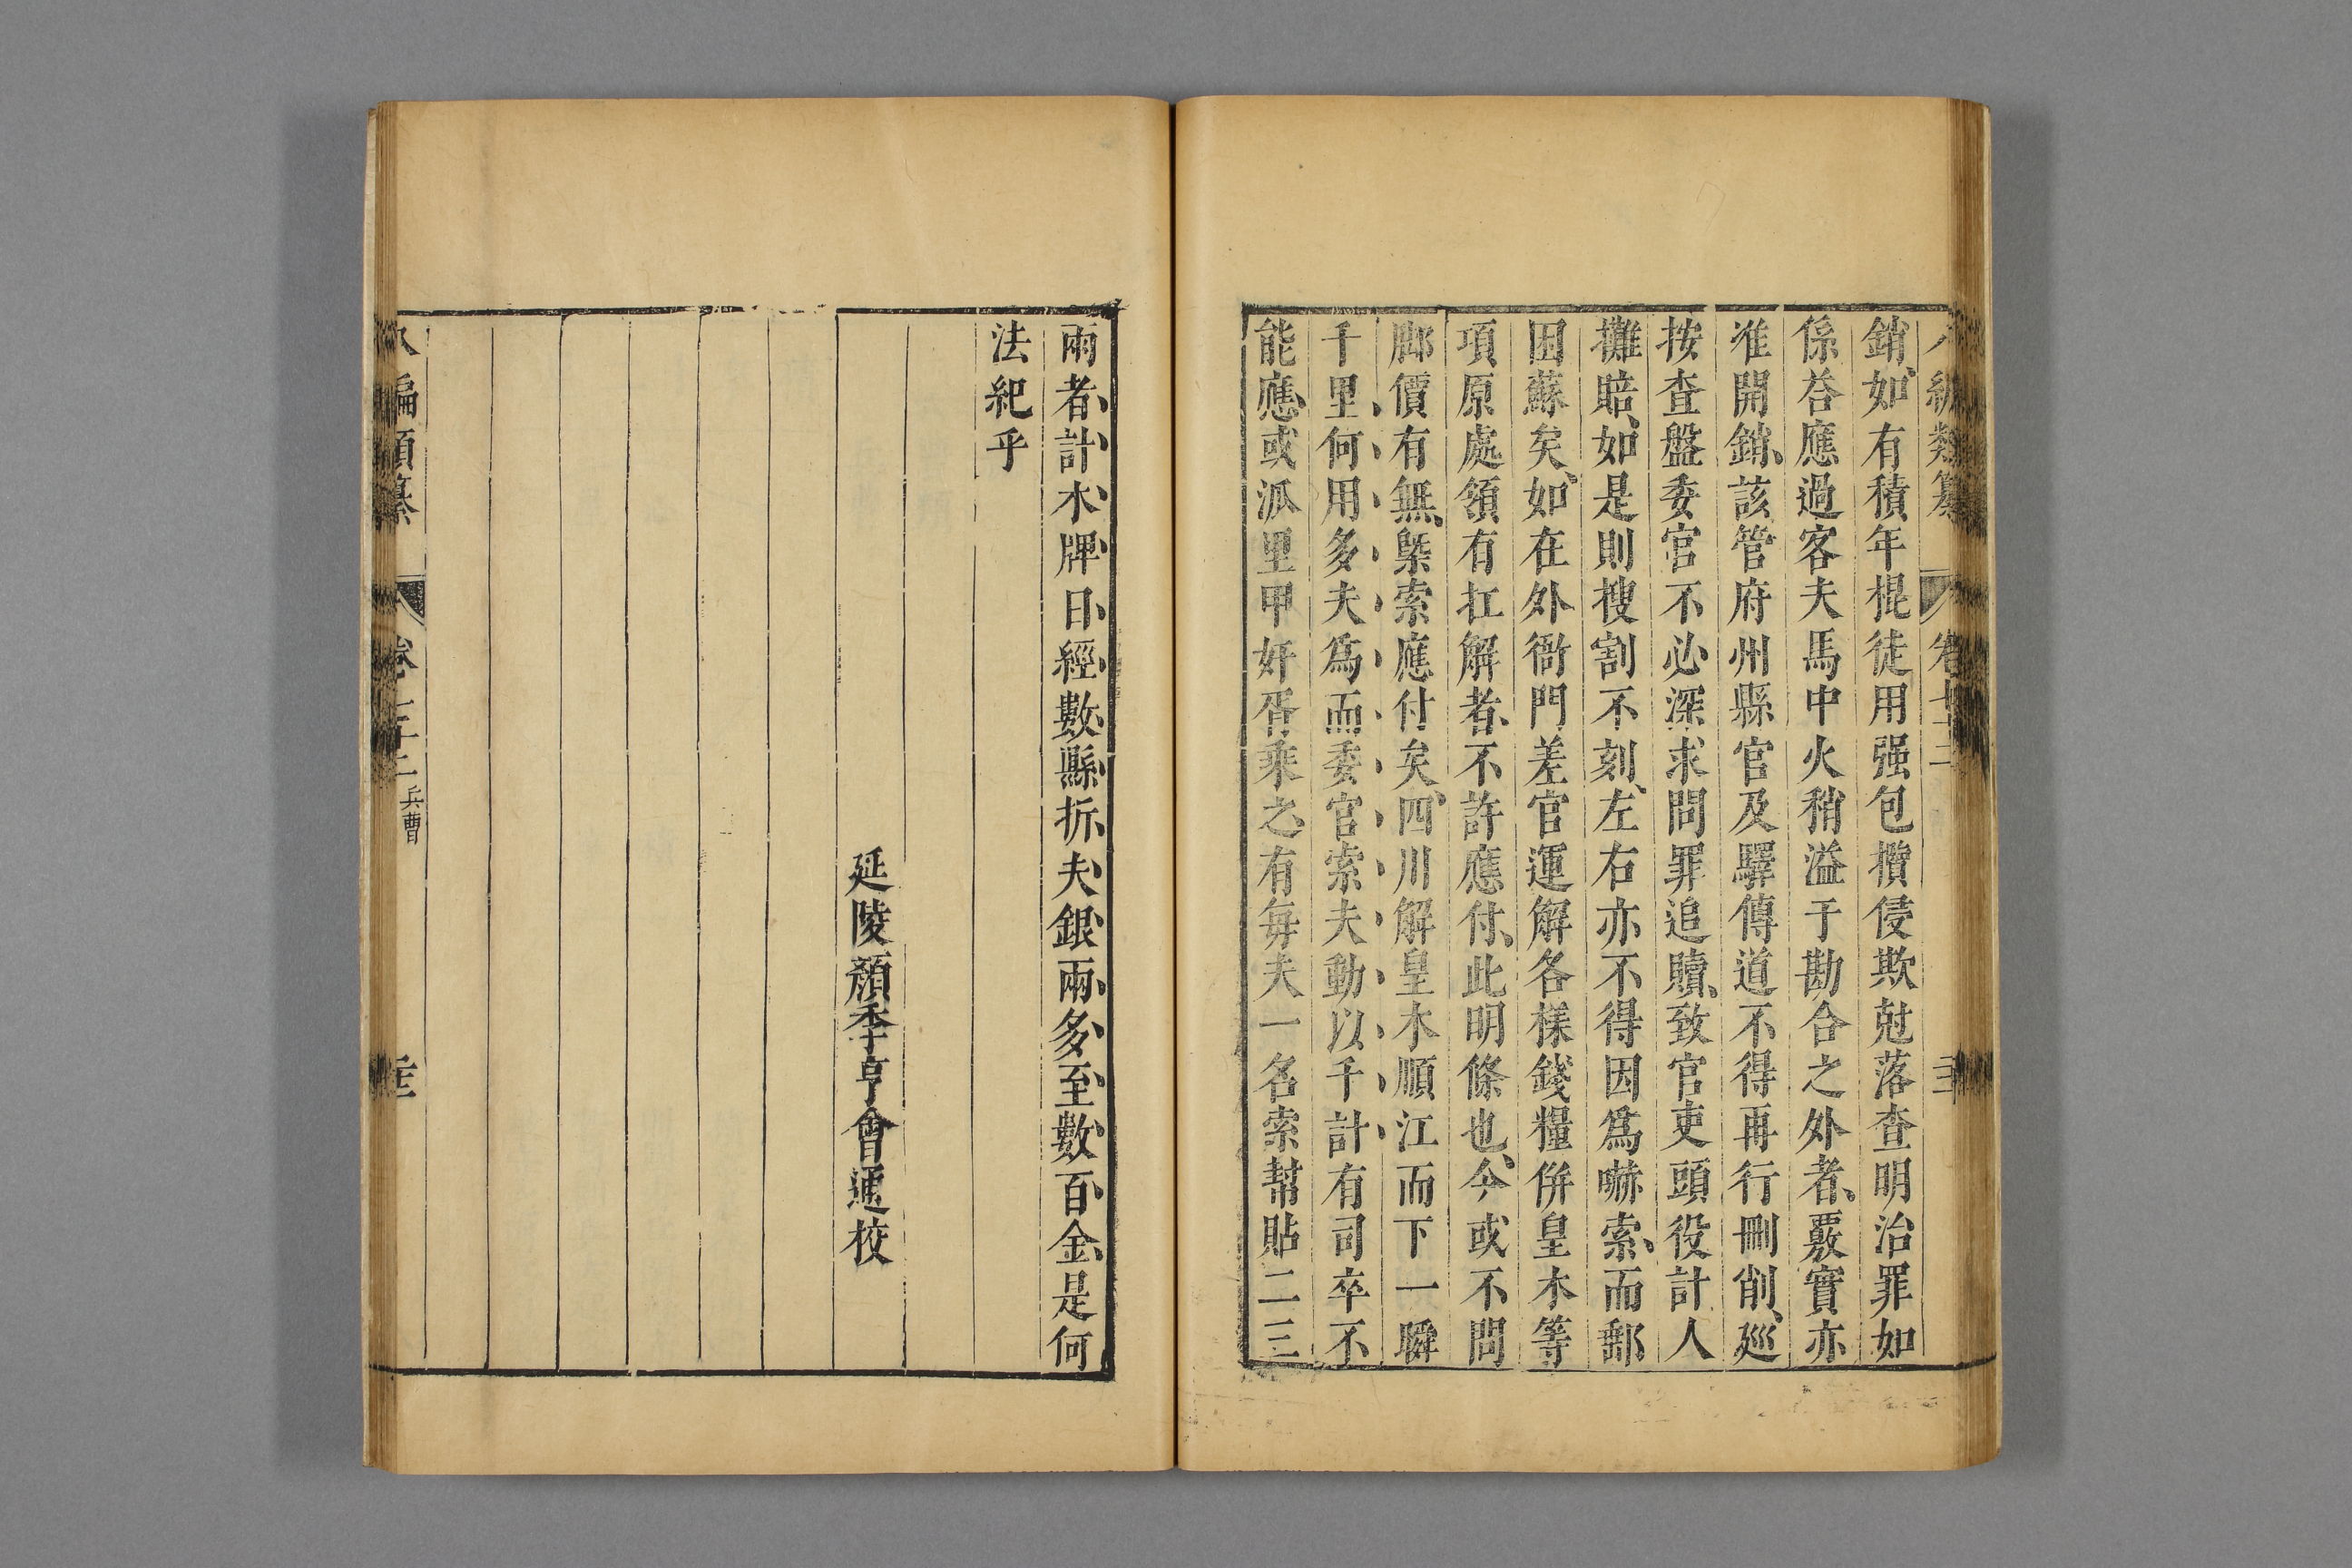 銷、如有積年棍徒用强包攬侵欺尅落查明治罪如
係荅應過客夫馬中火稍溢于勘合之外者、覈實亦
准開銷、該管府州縣官及驛傳道不得再行刪削、廵
按查盤委官不必深求問罪追贖、致官吏頭役計人
攤賠、如是則搜割不刻、左右亦不得因爲嚇索、而郵
困蘇矣、如在外衙門差官運解各樣錢糧倂皇木等
項原處領有扛解者、不許應付、此明條也、今或不問
脚價有無、槩索應付矣、四川解皇木順江而下一瞬
千里、何用多夫爲而委官索夫動以千計有司卒不
能應、或派里甲奸胥乘之、有每夫一名索幫貼二三
兩者、計木牌日經數縣折夫銀兩多至數百金、是何
法紀乎
延陵顏季亨會通校
八編類纂
兵曹